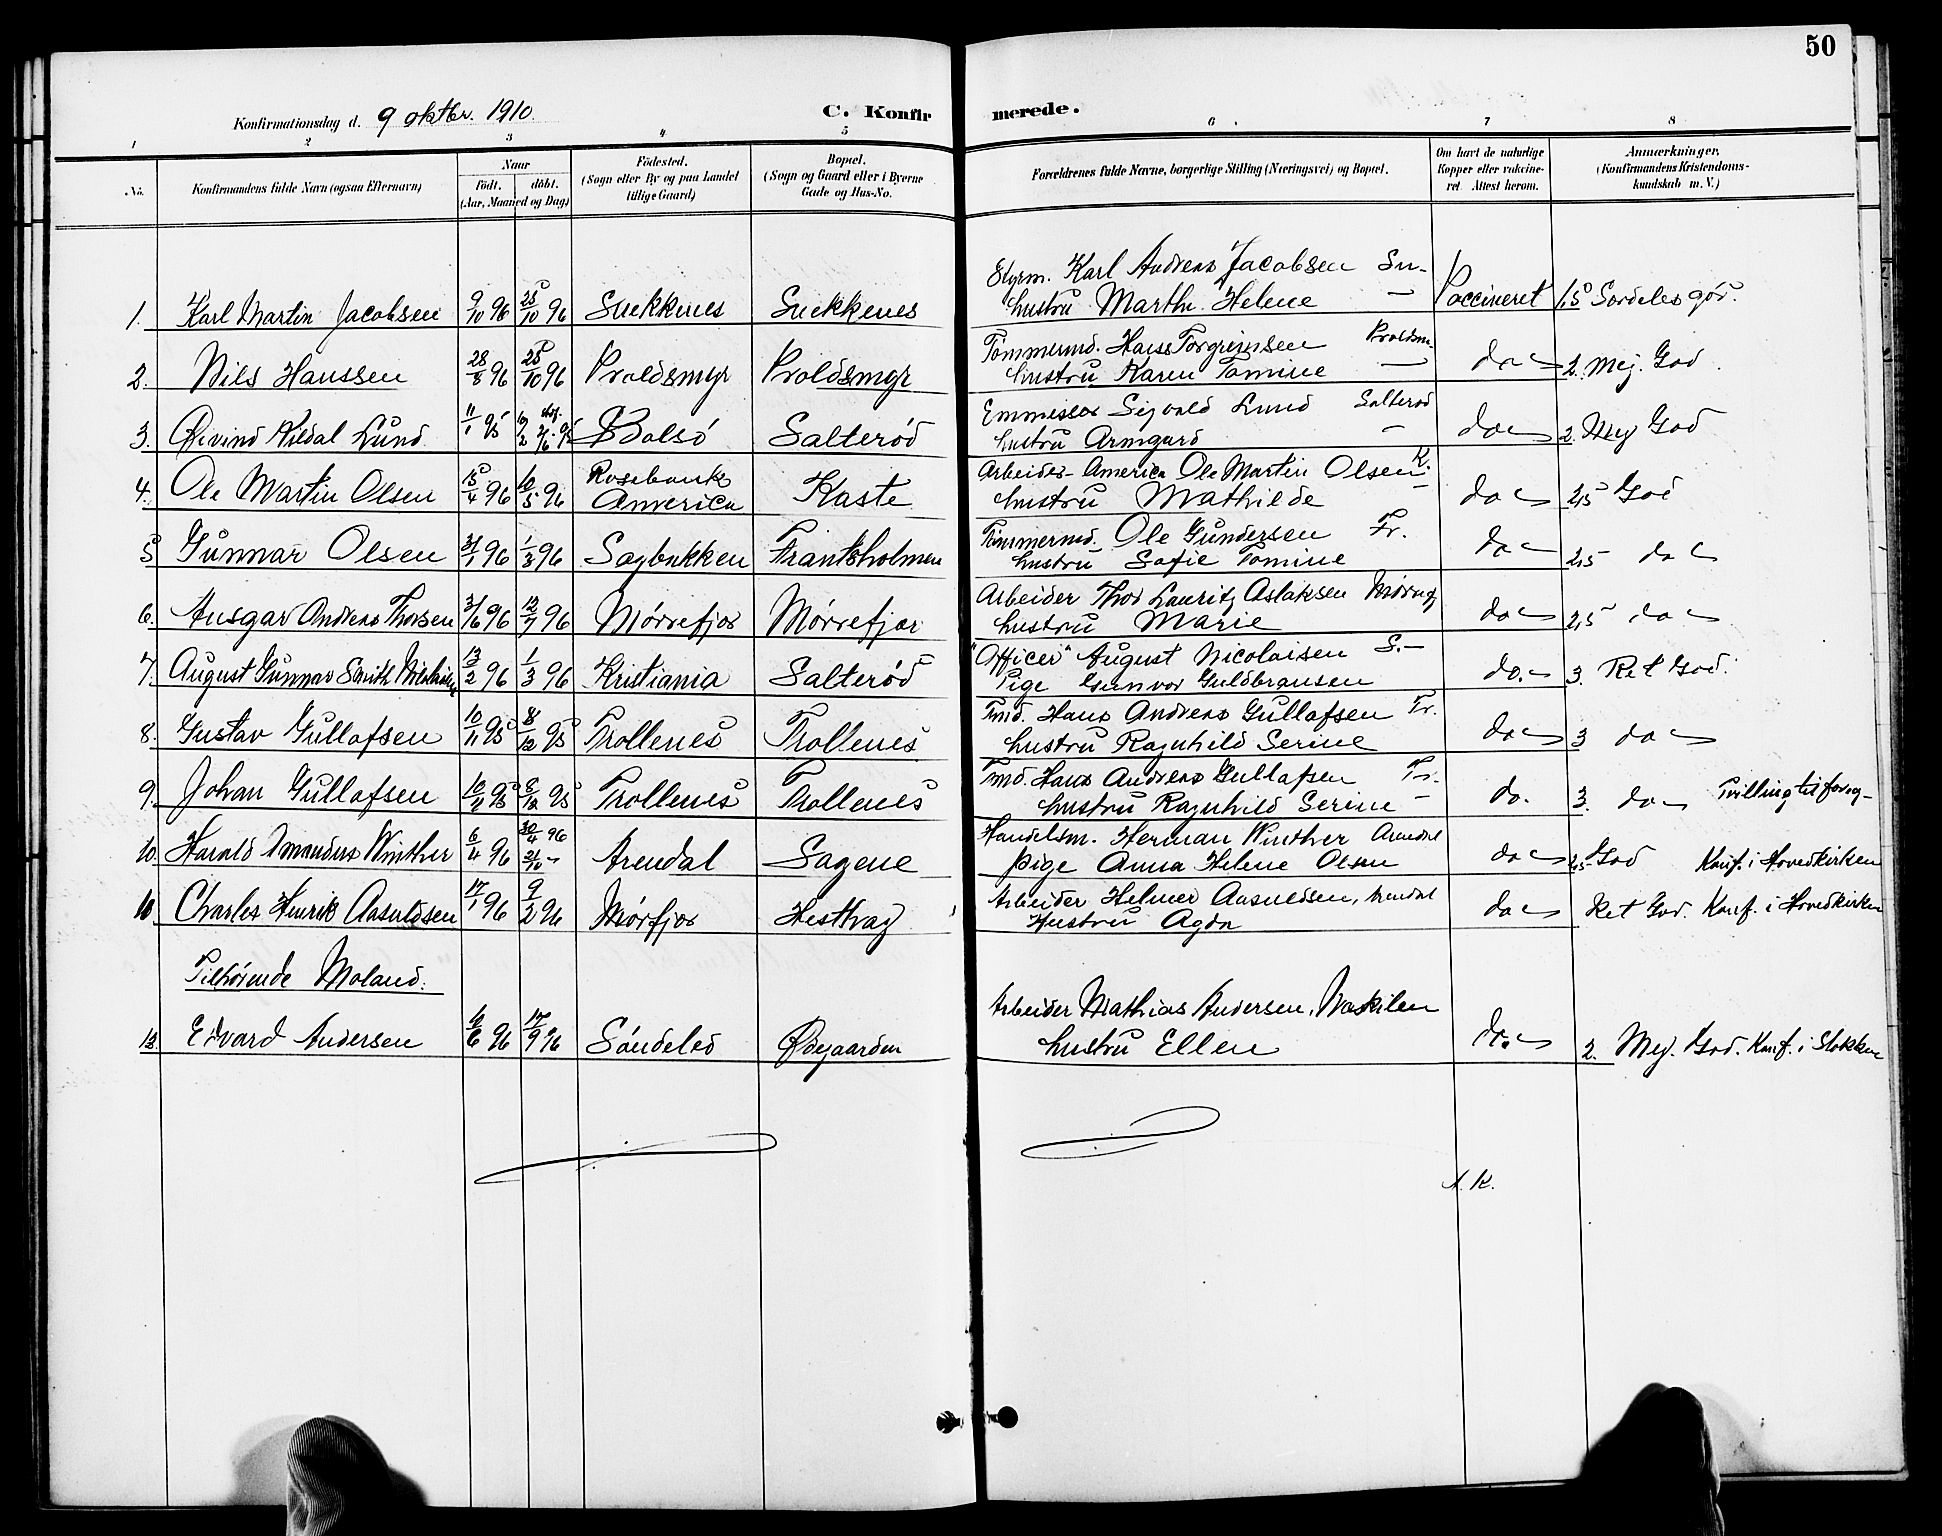 50
Konfirmationsdag d. 9 oktbr. 1910. C. Konfirmerede.
1 2 3 4 5 6 7 8
No. Konfirmandens fulde Navn (ogsaa Efternavn) Naar født. døbt. (Aar, Maaned og Dag) Fødested. (Sogn eller By og paa Landet tillige Gaard) Bopæl. (Sogn og Gaard eller i Byerne Gade og Hus-No. Forældrenes fulde Navne, borgerlige Stilling (Næringsvei) og Bopæl. Om havt de naturlige Kopper eller vakcineret. Attest herom. Anmærkninger. (Konfirmandens Kristendomskundskab m. V.)
Styrm. Karl Andreas Jacobsen Sn-
1. Karl Martin Jacobsen 9/10 96 25/10 96 Snekkenes Snekkenes hustru Marthe Helene — Vaccineret 1,5 Særdeles god.
Tømmermd. Hans Torgrimsen Proldsm.
2. Nils Hanssen 28/8 96 25/10 96 Proldsmyr Proldsmyr hustru Karen Tomine — do 2. Meg. God
Emmissær Sigvald Lund Salterød
3. Øivind Vildal Lund 11/1 95 Salterød hustru Armgard - do 2. Meg God
Arbeider - America Ole Martin Olsen K.
4. Ole Martin Olsen 15/4 96 10/5 96 Rosebank America Kaste hustru Mathilde do 2,5 God
Tømmermd. Ole Gundersen Fr.
5 Gunnar Olsen 31/1 96 1/3 96 Sagbakken Frantsholmen hustru Sofie Tomine do 2,5 do
Arbeider Thor Lauritz Aslaksen Mørref
6. Ansgar Andreas Thorsen 3/6 96 12/7 96 Mørrefjær Mørrefjær hustru Marie do 2,5 do
"Officer" August Nicolaisen S.-
7. August Gunnar Smith Nicolaisen 13/2 96 1/3 96 Kristiania Salterød Pige Gunvor Guldbransen do. 3. Ret God.
Tmd. Hans Andreas Gullafsen Tr.
8. Gustav Gullafsen 10/11 95 8/12 95 Trollenes Trollenes hustru Ragnhild Serine do 3 do
Tmd. Hans Andreas Gullafsen Tr.
9. Johan Gullafsen 10/11 95 8/12 95 Trollenes Trollenes hustru Ragnhild Serine - do. 3. do Tvilling til foreg-
Handelsm. Herman Winther Arendal
10. Harald Amandus Winther 6/4 96 30/4 96 21/10 - Arendal Sagene pige Anna Helene Olsen do 2,5 God Konf. i Hovedkirken
Arbeider Helmer Aasuldsen, Arendal
11 Charles Henrik Aasuldsen 17/1 96 9/2 96 Mørfjær Hesthag Hustru Agda do Ret God. Konf. i Hovedkirken
Tilhørende Moland.
Arbeider Mathias Andersen, Naskilen
12 Edvard Andersen 10/6 96 17/9 96 Søndeled Ødegaarden hustru Ellen do. 2. Meg. God. Konf. i Stokken
A. K.